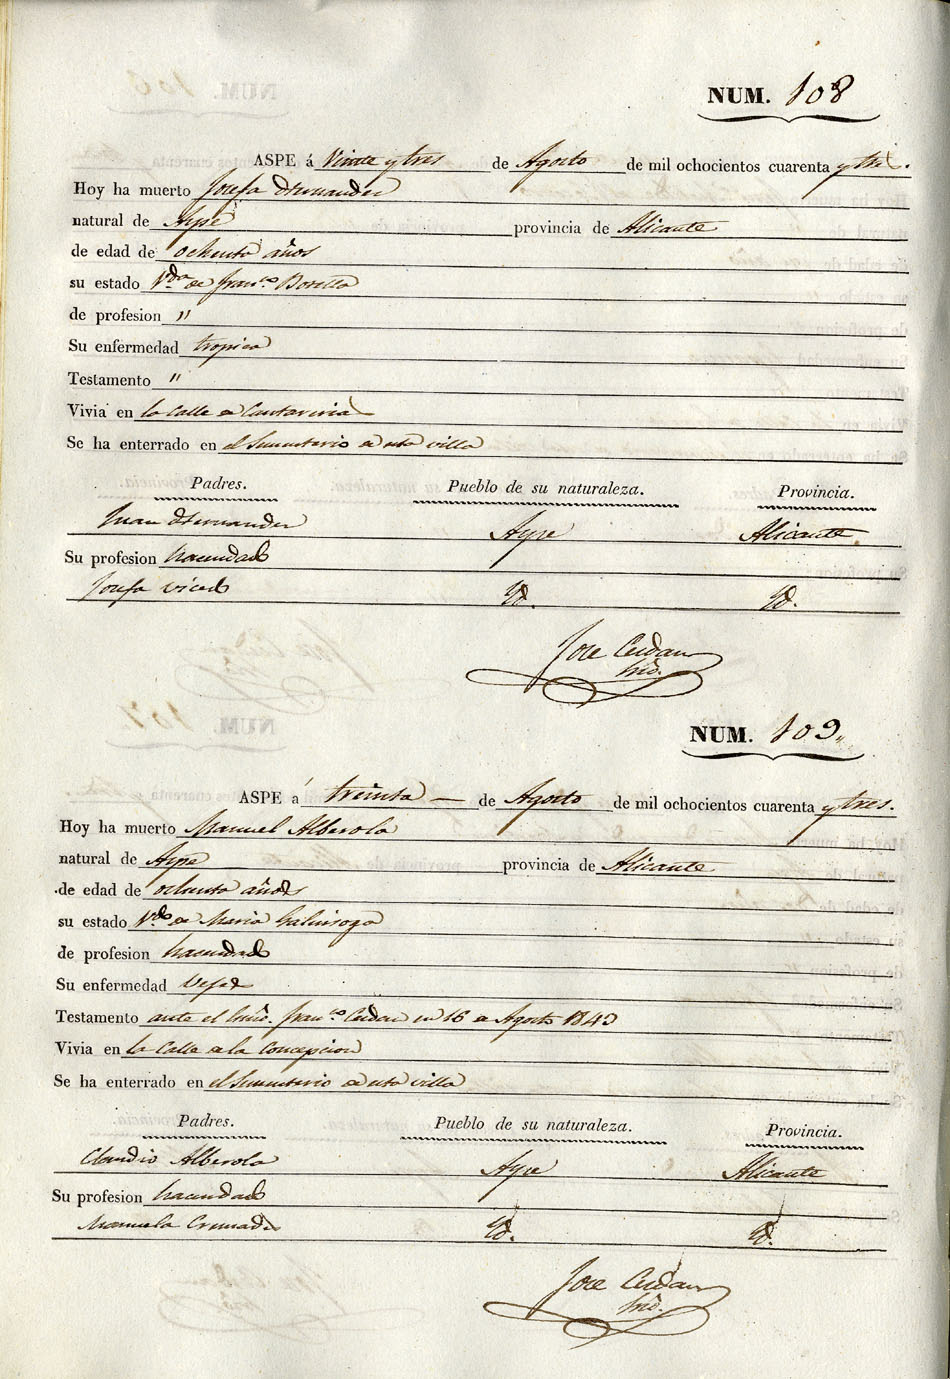 NUM. 108
ASPE á Vinte y tres de Agosto de mil ochocientos cuarenta y tres.
Hoy ha muerto Josefa Hernandez
natural de Aspe provincia de Alicante
de edad de ochenta años
su estado Vda. de Franco. Botella
de profesion "
Su enfermedad tropica
Testamento "
Vivia en la Calle de Cantareria
Se ha enterrado en el Sementerio de esta villa
Padres. Pueblo de su naturaleza. Provincia.
Juan Hernandez Aspe Alicante.
Su profesion hacendado
Josefa Vicedo Yd. Yd.
Jose Cerdan
NUM. 109
ASPE á treinta — de Agosto de mil ochocientos cuarenta y tres.
Hoy ha muerto Manuel Alberola
natural de Aspe provincia de Alicante
de edad de ochenta años
su estado Vdo. de Maria
de profesion hacendado
Su enfermedad Vejez
Testamento ante el Franco. Cerdan en 16 de Agosto 1843
Vivia en la Calle de la Concepcion
Se ha enterrado en el Sementerio de esta villa
Padres. Pueblo de su naturaleza. Provincia.
Claudio Alberola Aspe Alicante
Su profesion hacendado
Manuela Cremades Yd. Yd.
Jose Cerdan